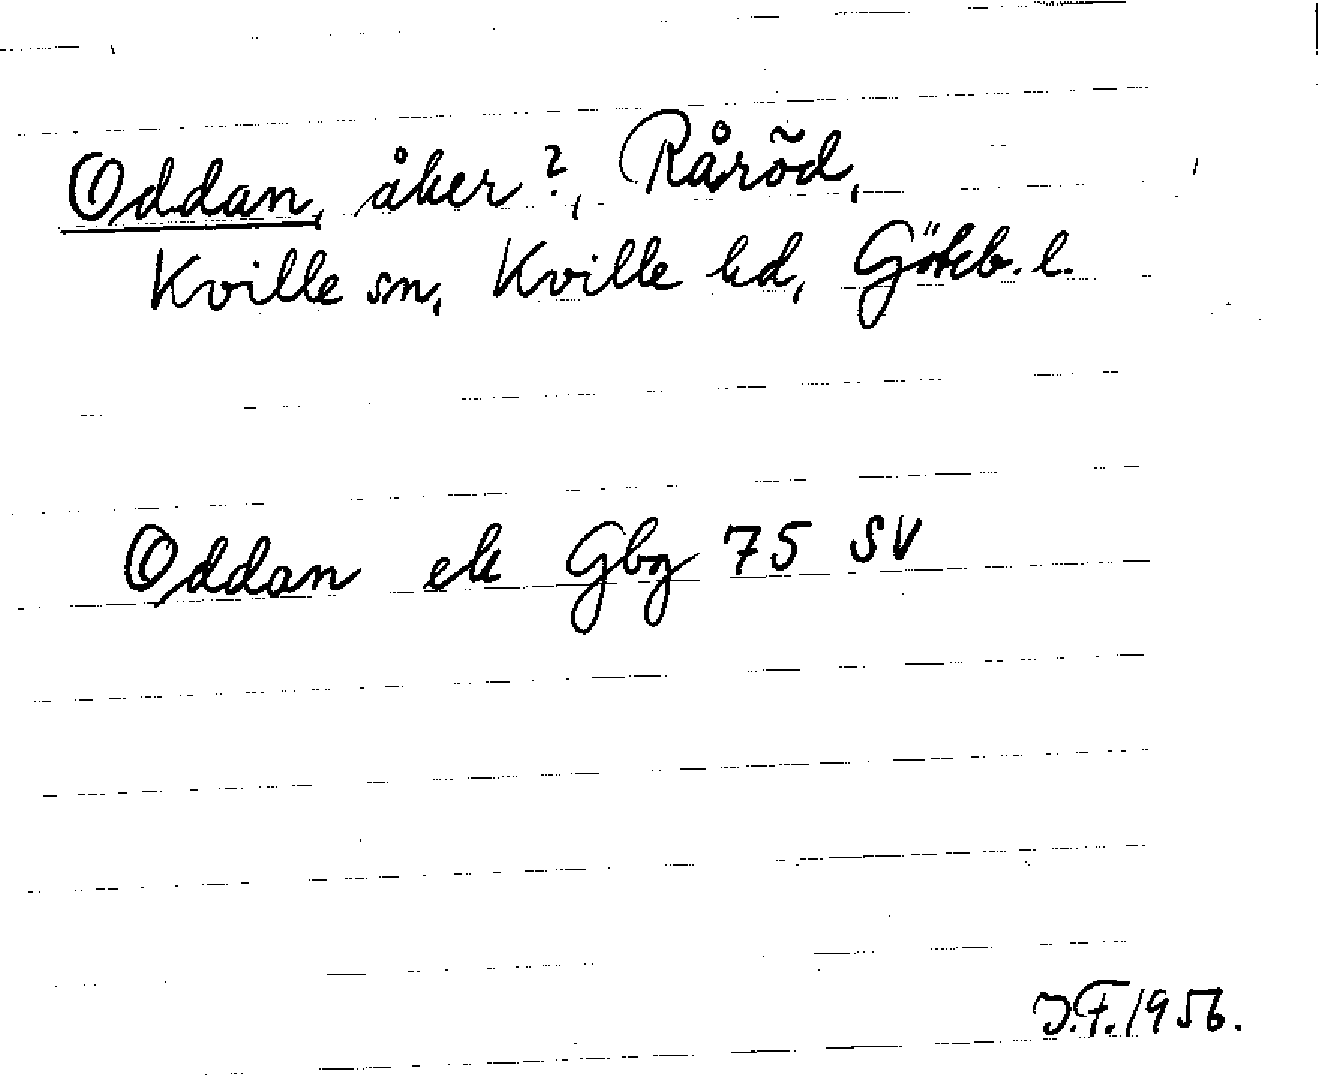 Oddan, åker?, Råröd,
Kville sn, Kville hd, Göteb. l.
Oddan ek Gbg 75 SV
J.F. 1956.